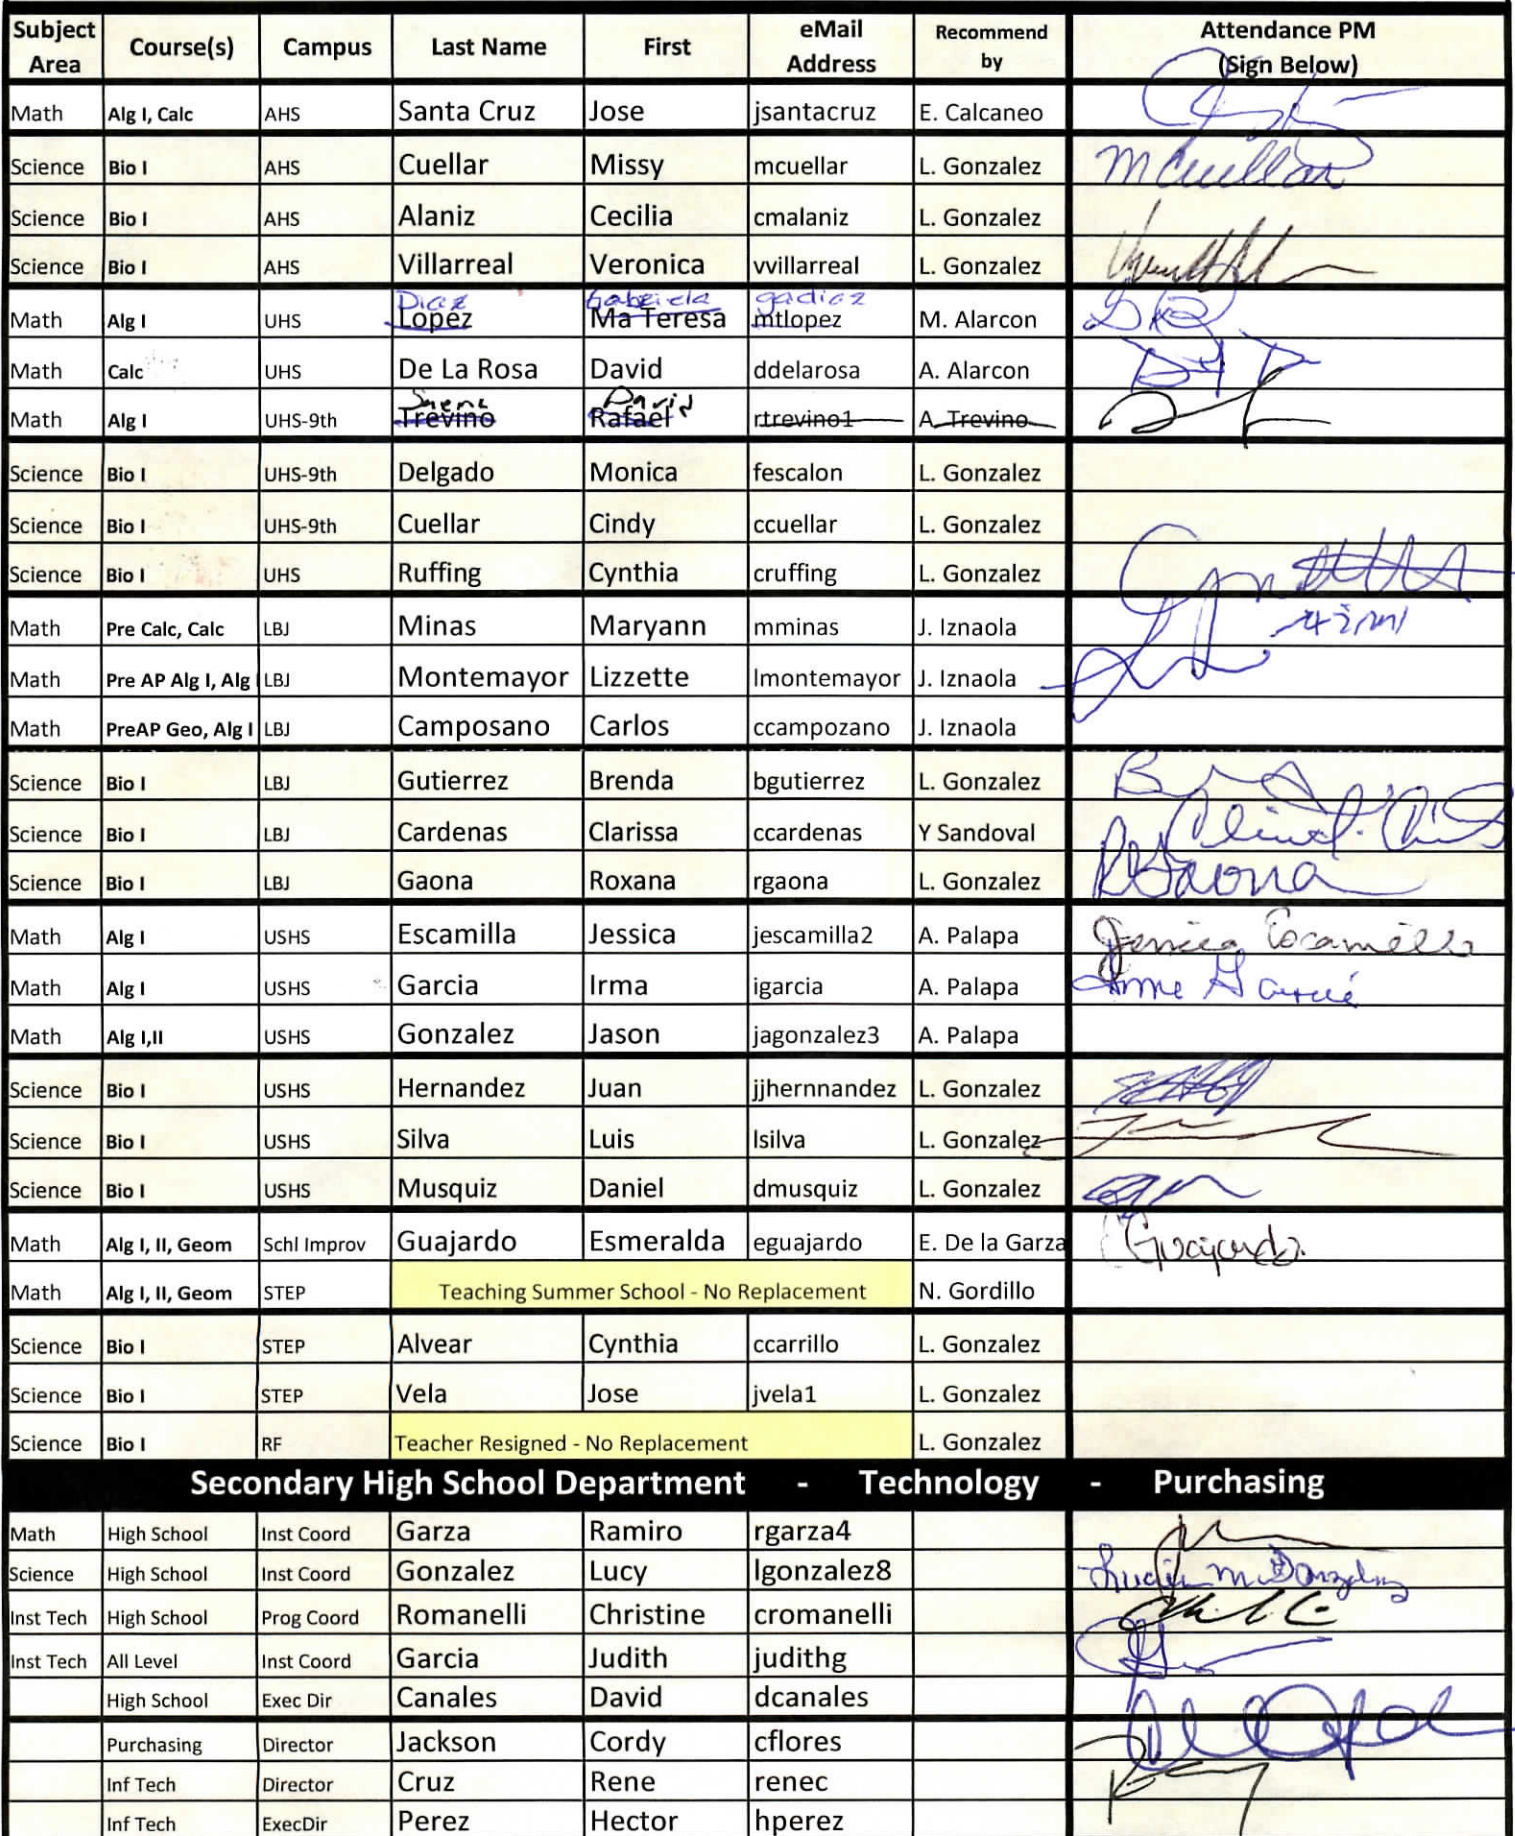 Subject Area Course(s) Campus Last Name First eMail Address Recommend by Attendance PM (Sign Below)
Math Alg I, Calc AHS Santa Cruz Jose jsantacruz E. Calcaneo
Science Bio I AHS Cuellar Missy mcuellar L. Gonzalez mcuellar
Science Bio I AHS Alaniz Cecilia cmalaniz L. Gonzalez
Science Bio I AHS Villarreal Veronica vvillarreal L. Gonzalez
Diaz Gabriela gadiaz
Math Alg I UHS Lopez Ma Teresa mtlopez M. Alarcon
Math Calc UHS De La Rosa David ddelarosa A. Alarcon
David
Math Alg I UHS-9th Trevino Rafael rtrevino1 A. Trevino
Science Bio I UHS-9th Delgado Monica fescalon L. Gonzalez
Science Bio I UHS-9th Cuellar Cindy ccuellar L. Gonzalez
Science Bio I UHS Ruffing Cynthia cruffing L. Gonzalez
Math Pre Calc, Calc LBJ Minas Maryann mminas J. Iznaola
Math Pre AP Alg I, Alg LBJ Montemayor Lizzette lmontemayor J. Iznaola
Math PreAP Geo, Alg I LBJ Camposano Carlos ccampozano J. Iznaola
Science Bio I LBJ Gutierrez Brenda bgutierrez L. Gonzalez
Science Bio I LBJ Cardenas Clarissa ccardenas Y Sandoval
Science Bio I LBJ Gaona Roxana rgaona L. Gonzalez RGaona
Math Alg I USHS Escamilla Jessica jescamilla2 A. Palapa Jessica Escamilla
Math Alg I USHS Garcia Irma igarcia A. Palapa Irma Garcia
Math Alg I,II USHS Gonzalez Jason jagonzalez3 A. Palapa
Science Bio I USHS Hernandez Juan jjhernnandez L. Gonzalez
Science Bio I USHS Silva Luis lsilva L. Gonzalez
Science Bio I USHS Musquiz Daniel dmusquiz L. Gonzalez
Math Alg I, II, Geom Schl Improv Guajardo Esmeralda eguajardo E. De la Garza Guajardo
Math Alg I, II, Geom STEP Teaching Summer School - No Replacement N. Gordillo
Science Bio I STEP Alvear Cynthia ccarrillo L. Gonzalez
Science Bio I STEP Vela Jose jvela1 L. Gonzalez
Science Bio I RF Teacher Resigned - No Replacement L. Gonzalez
Secondary High School Department - Technology - Purchasing
Math High School Inst Coord Garza Ramiro rgarza4
Science High School Inst Coord Gonzalez Lucy lgonzalez8
Inst Tech High School Prog Coord Romanelli Christine cromanelli
Inst Tech All Level Inst Coord Garcia Judith judithg
High School Exec Dir Canales David dcanales
Purchasing Director Jackson Cordy cflores
Inf Tech Director Cruz Rene renec
Inf Tech ExecDir Perez Hector hperez